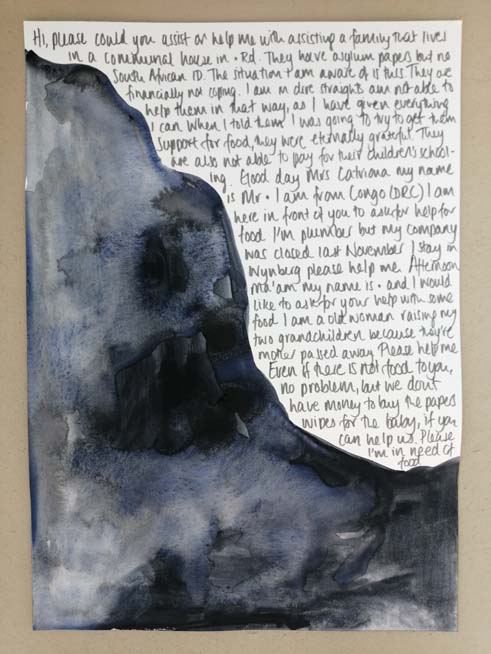 Hi, please could you assist or help me with assisting a family that lives
in a communal house in • Rd. They have asylum papers but no
South African ID. The situation I am aware of is this. They are
financially not coping. I am in dire straights am not able to
help them in that way, as I have given everything
I can. When I told them I was going to try to get them
support for food, they were eternally grateful. They
are also not able to pay for their children's school-
ing. Good day Mrs Catriona my name
is Mr • I am from Congo (DRC) I am
here in front of you to ask for help for
food. I'm plumber but my company
was closed last November. I stay in
Wynberg please help me. Afternoon
ma'am my name is • and I would
like to ask for your help with some
food I am a old woman raising my
two grandchildren because they're
mother passed away. Please help me
Even if there is not food to you,
no problem, but we dont
have money to buy the papers
wipes for the baby, if you
can help us. Please
I'm in need of
food